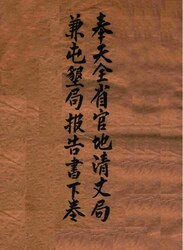 奉天全省官地清丈局
兼屯墾局报告書下巻